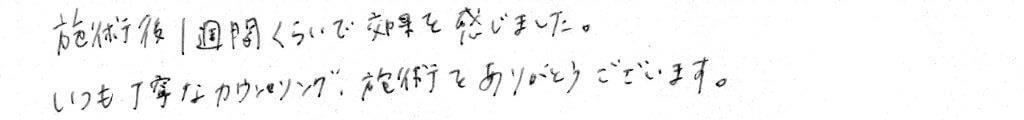 施術後1週間くらいで効果を感じました。
いつも丁寧なカウンセリング、施術をありがとうございます。